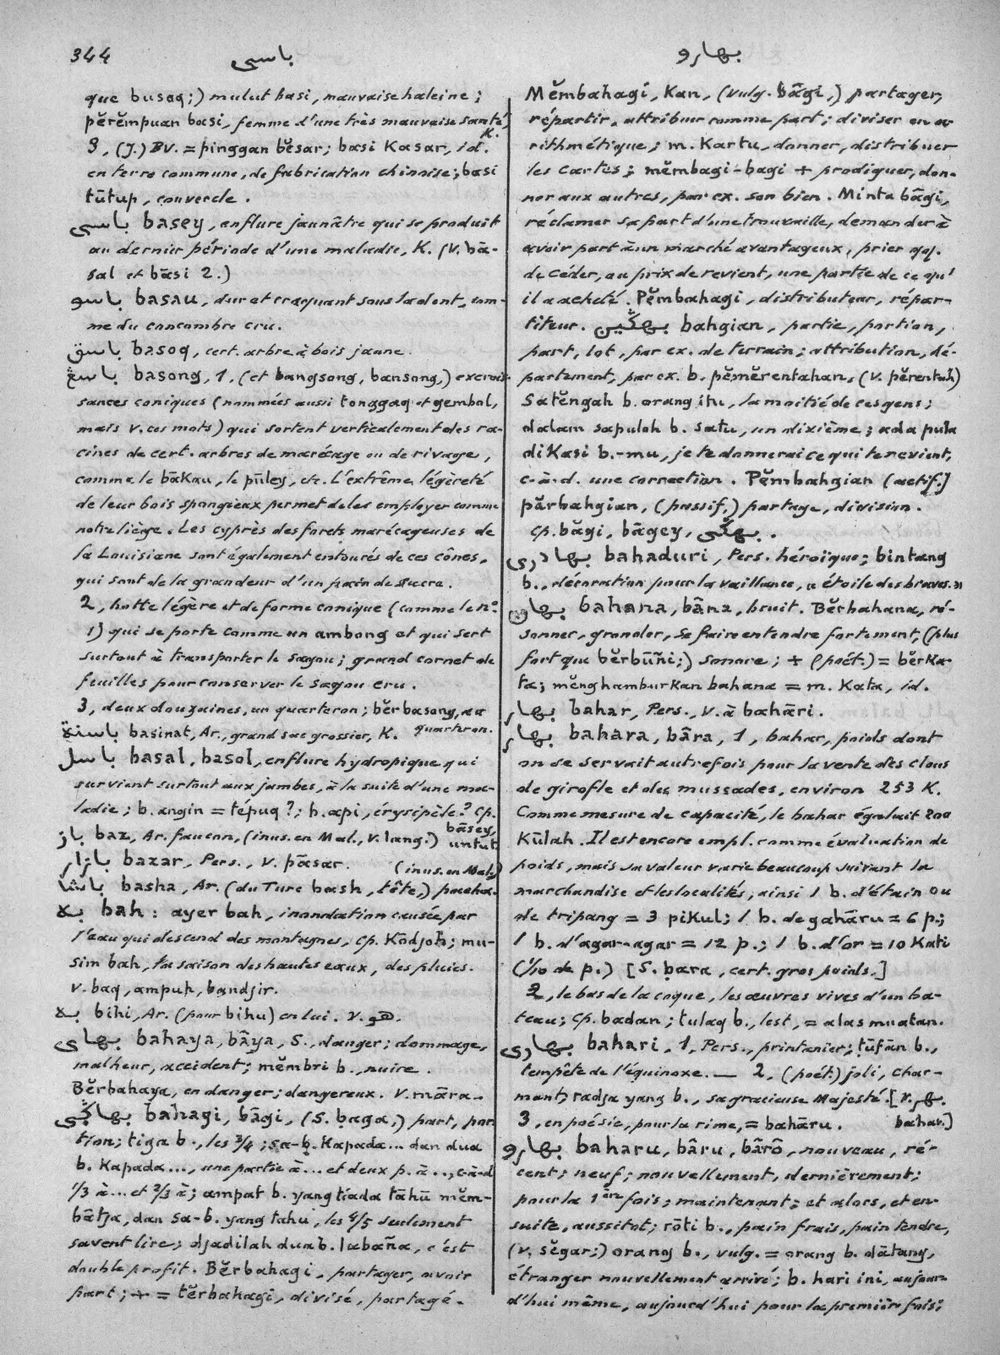 344
باسى
بهارو
que busaq;) mulut basi, mauvaise haleine;
pĕrĕmpuan basi, femme d'une très mauvaise santé,
K.
3, (J.) Bv. = pinggan bĕsar; basi Kasar, id.
en terre commune, de fabrication chinoise; basi
tūtup, couvercle.
باسى basey, enflure jaunâtre qui se produit
au dernier période d'une maladie, K. (v. bā-
sal et bāsi 2.)
باسو basau, dur et craquant sous la dent, com-
me du concombre cru.
باسق basoq, cert. arbre à bois jaune.
باسڠ basong, 1, (et bangsong, bansong,) excrois-
sances coniques (nommées aussi tonggaq et gembal,
mais v. ces mots) qui sortent verticalement des ra-
cines de cert. arbres de marécage ou de rivage,
comme le bāKau, le pūley, etc. L'extrême légèreté
de leur bois spongieux permet de les employer comme
notre liège. Les cyprès des forêts marécageuses de
la Louisiane sont également entourés de ces cônes,
qui sont de la grandeur d'un pain de sucre.
2, hotte légère et de forme conique (comme le nº
1) qui se porte comme un ambong et qui sert
surtout à transporter le sagou; grand cornet de
feuilles pour conserver le sagou cru.
3, deux douzaines, un quarteron; bĕrbasong, au
quarteron.
باسنة basinat, Ar., grand sac grossier, K.
باسل basal, basol, enflure hydropique qui
survient surtout aux jambes, à la suite d'une ma-
ladie; b. angin = tépuq?; b. api, érysipèle? Cp.
bāsey,
باز baz, Ar. faucon, (inus. en Mal., v. lang.) untut
بازار bazar, Pers., v. pāsar. (inus. en Mal.)
باشا basha, Ar. (du Turc bash, tête,) pacha.
به bah: ayer bah, inondation causée par
l'eau qui descend des montagnes, cp. Kōdjoh; mu-
sim bah, la saison des hautes eaux, des pluies.
v. baq, ampuh, bandjir.
به bihi, Ar. (pour bihu) en lui. v. هو.
بهاى bahaya, bāya, S., danger; dommage,
malheur, accident; mĕmbri b., nuire.
Bĕrbahaya, en danger; dangereux. v. māra-
بهاݢى bahagi, bāgi, (S. baga,) part, por-
tion; tiga b., les 3/4; sa-b. Kapada... dan dua
b. Kapada..., une partie à... et deux p. à..., c-à-d
1/3 à... et 2/3 à; ampat b. yang tiada tahū mĕm-
bātja, dan sa-b. yang tahu, les 4/5 seulement
savent lire; djadilah dua b. labaña, c'est
double profit. Bĕrbahagi, partager, avoir
part; + = tĕrbahagi, divisé, partagé.
Mĕmbahagi, Kan, (vulg. bāgi,) partager,
répartir, attribuer comme part; diviser en a-
rithmétique; m. Kartu, donner, distribuer
les cartes; mĕmbagi-bagi + prodiguer, don-
ner aux autres, par ex. son bien. Minta bāgi,
réclamer sa part d'une trouvaille, demander à
avoir part à un marché avantageux, prier qq.
de céder, au prix de revient, une partie de ce qu'
il a acheté. Pĕmbahagi, distributeur, répar-
titeur. بهݢين bahgian, partie, portion,
part, lot, par ex. de terrain; attribution, dé-
partement, par ex. b. pĕmĕrentahan, (v. pĕrentah)
Satĕngah b. orang itu, la moitié de ces gens;
dalam sapuloh b. satu, un dixième; ada pula
diKasi b.-mu, je te donnerai ce qui te revient,
c-à-d. une correction. Pĕmbahgian (actif,)
pārbahgian, (passif,) partage, division.
cp. bāgi, bāgey, بهݢى.
بهادرى bahaduri, Pers. héroïque; bintang
b., décoration pour la vaillance, « étoile des braves. »
بهان bahana, bāna, bruit. Bĕrbahana, ré-
sonner, gronder, se faire entendre fortement, (plus
fort que bĕrbūñi;) sonore; + (poét.) = bĕrKa-
ta; mĕnghamburKan bahana = m. Kata, id.
بهار bahar, Pers., v. à bahāri.
بهار bahara, bāra, 1, bahar, poids dont
on se servait autrefois pour la vente des clous
de girofle et des muscades, environ 253 K.
Comme mesure de capacité, le bahar égalait 200
Kūlah. Il est encore empl. comme évaluation de
poids, mais sa valeur varie beaucoup suivant la
marchandise et les localités, ainsi 1 b. d'étain ou
de tripang = 3 piKul; 1 b. de gahāru = 6 p.;
1 b. d'agar-agar = 12 p.; 1 b. d'or = 10 Kati
(1/10 de p.) [S. bara, cert. gros poids.]
2, le bas de la coque, les œuvres vives d'un ba-
teau; cp. badan; tulaq b., lest, = alas muatan.
بهارى bahari, 1, Pers., printanier; tūfān b.,
tempête de l'équinoxe. — 2, (poét.) joli, char-
mant; radja yang b., sa gracieuse Majesté [v. بهر
3, en poésie, pour la rime, = bahāru. bahar.]
بهارو baharu, bāru, bārō, nouveau, ré-
cent; neuf; nouvellement, dernièrement;
pour la 1ère fois; maintenant; et alors, et en-
suite, aussitôt; rōti b., pain frais, pain tendre,
(v. sĕgar;) orang b., vulg. = orang b. dātang,
étranger nouvellement arrivé; b. hari ini, aujour-
d'hui même, aujourd'hui pour la première fois;